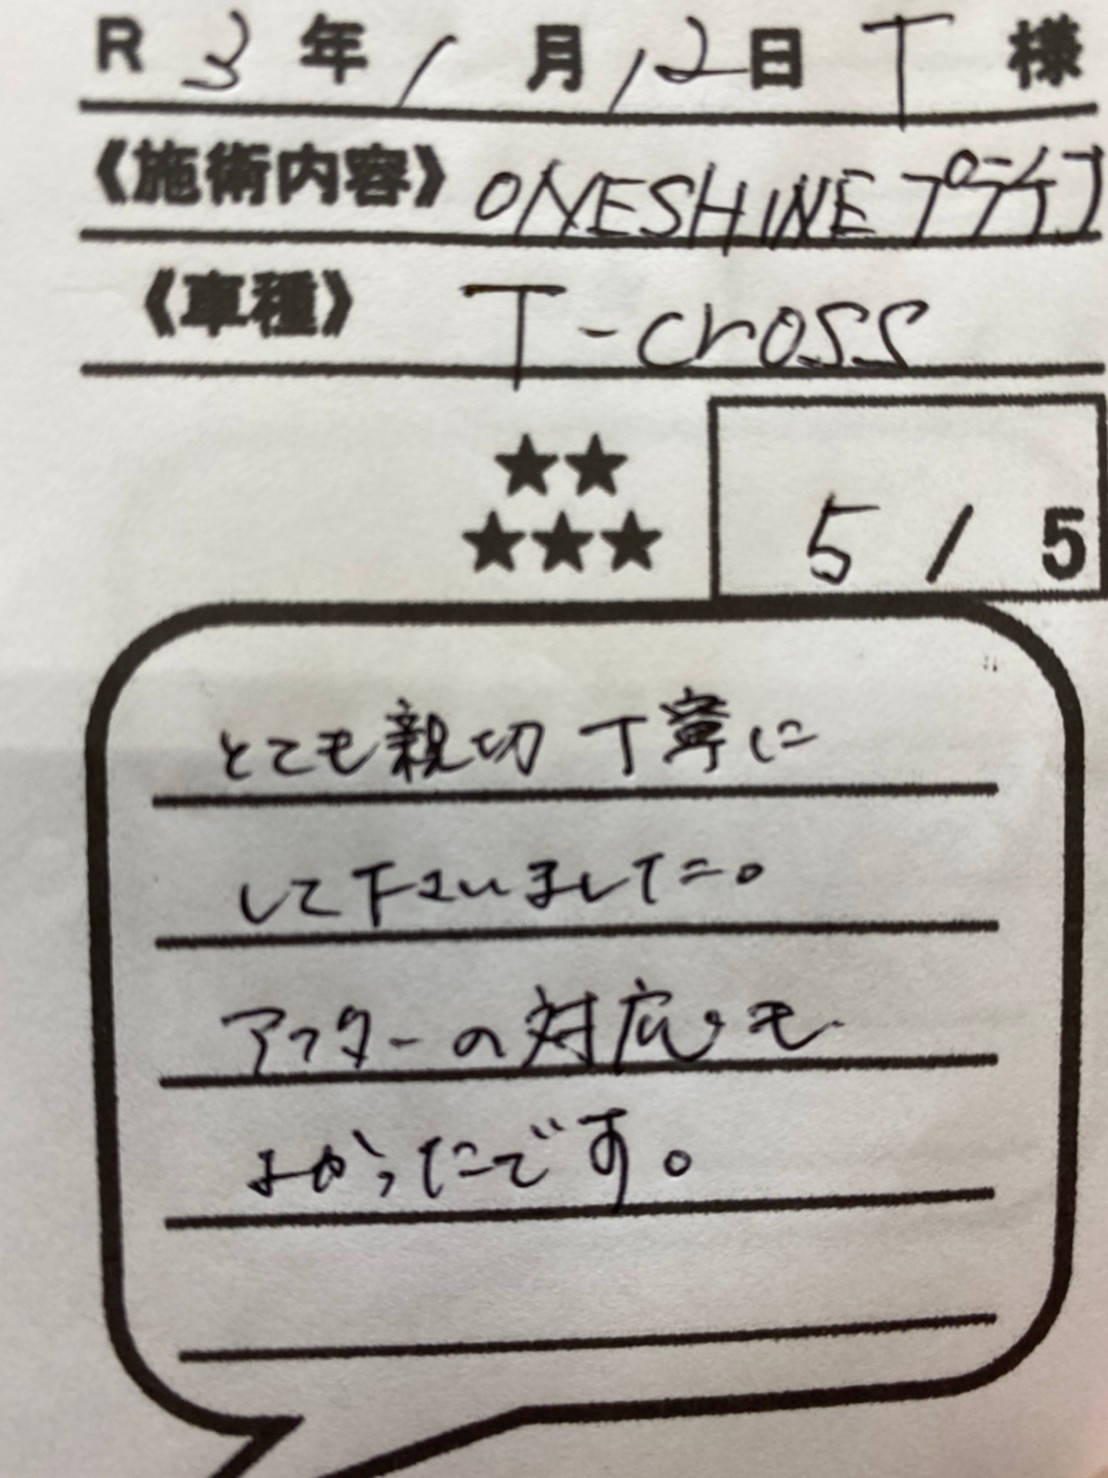 R 3年 1月 12日 T 様
《施術内容》 ONESHINE
《車種》 T-cross
★★
★★★ 5 / 5
とても親切 丁寧に
して下さいました。
アフターの対応も
よかったです。